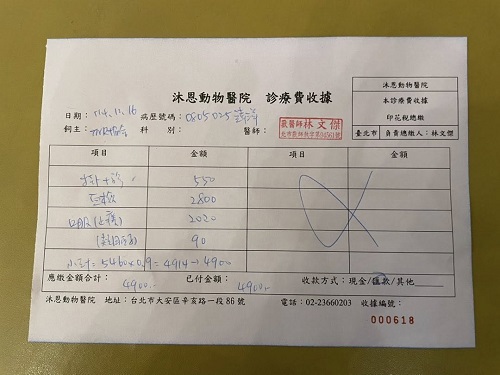 沐恩動物醫院 診療費收據
沐恩動物醫院
本診療費收據
印花稅總繳
臺北市 負責總繳人：林文傑
日期：114.11.16 病歷號碼：0805025
飼主： 科 別： 醫師： 獸醫師林文傑
項目 金額 項目 金額
掛+診 550
2800
口服 2020
90
小計=5460×0.9=4914→4900
應繳金額合計：4900.- 已付金額：4900.- 收款方式：現金/匯款/其他
沐恩動物醫院 地址：台北市大安區辛亥路一段86號 電話：02-23660203 收據編號：
000618